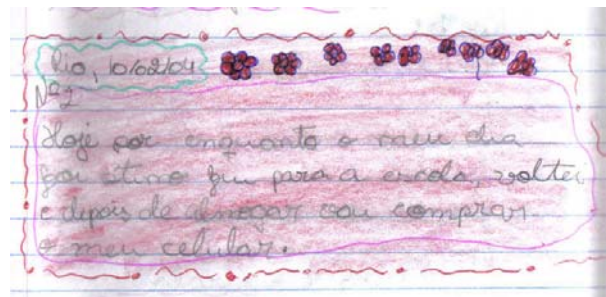 Rio, 10/02/04
Nº 2
Hoje por enquanto o meu dia
foi ótimo fui para a escola, voltei
e depois de almoçar vou comprar
o meu celular.